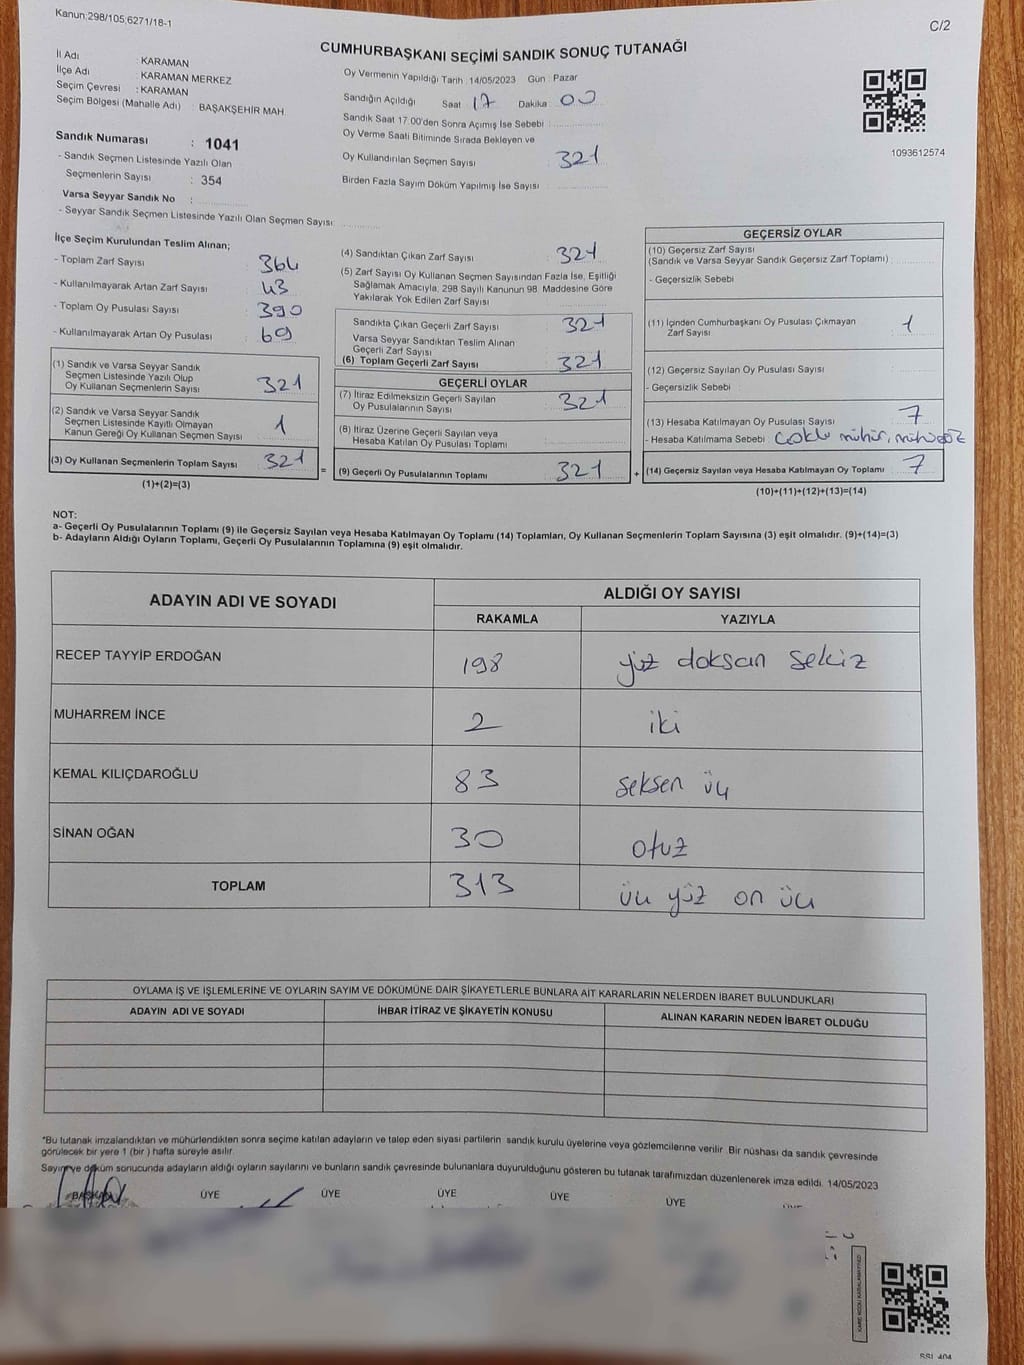 Kanun;298/105,6271/18-1
C/2
CUMHURBAŞKANI SEÇİMİ SANDIK SONUÇ TUTANAĞI
İl Adı : KARAMAN
İlçe Adı : KARAMAN MERKEZ
Seçim Çevresi : KARAMAN
Seçim Bölgesi (Mahalle Adı) : BAŞAKŞEHİR MAH
Sandık Numarası : 1041
- Sandık Seçmen Listesinde Yazılı Olan
Seçmenlerin Sayısı : 354
Varsa Seyyar Sandık No :
- Seyyar Sandık Seçmen Listesinde Yazılı Olan Seçmen Sayısı:
Oy Vermenin Yapıldığı Tarih :14/05/2023 Gün : Pazar
Sandığın Açıldığı Saat 17 Dakika 00
Sandık Saat 17.00'den Sonra Açımış İse Sebebi :
Oy Verme Saati Bitiminde Sırada Bekleyen ve
Oy Kullandırılan Seçmen Sayısı 321
Birden Fazla Sayım Döküm Yapılmış İse Sayısı
1093612574
İlçe Seçim Kurulundan Teslim Alınan;
- Toplam Zarf Sayısı 364
- Kullanılmayarak Artan Zarf Sayısı 43
- Toplam Oy Pusulası Sayısı 390
- Kullanılmayarak Artan Oy Pusulası 69
(1) Sandık ve Varsa Seyyar Sandık
Seçmen Listesinde Yazılı Olup
Oy Kullanan Seçmenlerin Sayısı 321
(2) Sandık ve Varsa Seyyar Sandık
Seçmen Listesinde Kayıtlı Olmayan
Kanun Gereği Oy Kullanan Seçmen Sayısı 1
(3) Oy Kullanan Seçmenlerin Toplam Sayısı 321 =
(1)+(2)=(3)
(4) Sandıktan Çıkan Zarf Sayısı 321
(5) Zarf Sayısı Oy Kullanan Seçmen Sayısından Fazla İse, Eşitliği
Sağlamak Amacıyla, 298 Sayılı Kanunun 98. Maddesine Göre
Yakılarak Yok Edilen Zarf Sayısı
Sandıkta Çıkan Geçerli Zarf Sayısı 321
Varsa Seyyar Sandıktan Teslim Alınan
Geçerli Zarf Sayısı
(6) Toplam Geçerli Zarf Sayısı 321
GEÇERLİ OYLAR
(7) İtiraz Edilmeksizin Geçerli Sayılan
Oy Pusulalarının Sayısı 321
(8) İtiraz Üzerine Geçerli Sayılan veya
Hesaba Katılan Oy Pusulası Toplamı
(9) Geçerli Oy Pusulalarının Toplamı 321 +
GEÇERSİZ OYLAR
(10) Geçersiz Zarf Sayısı
(Sandık ve Varsa Seyyar Sandık Geçersiz Zarf Toplamı)
- Geçersizlik Sebebi
(11) İçinden Cumhurbaşkanı Oy Pusulası Çıkmayan
Zarf Sayısı 1
(12) Geçersiz Sayılan Oy Pusulası Sayısı
- Geçersizlik Sebebi :
(13) Hesaba Katılmayan Oy Pusulası Sayısı 7
- Hesaba Katılmama Sebebi : Çoklu mühür, mühürsüz
(14) Geçersiz Sayılan veya Hesaba Katılmayan Oy Toplamı 7
(10)+(11)+(12)+(13)=(14)
NOT:
a- Geçerli Oy Pusulalarının Toplamı (9) ile Geçersiz Sayılan veya Hesaba Katılmayan Oy Toplamı (14) Toplamları, Oy Kullanan Seçmenlerin Toplam Sayısına (3) eşit olmalıdır. (9)+(14)=(3)
b- Adayların Aldığı Oyların Toplamı, Geçerli Oy Pusulalarının Toplamına (9) eşit olmalıdır.
ADAYIN ADI VE SOYADI ALDIĞI OY SAYISI
RAKAMLA YAZIYLA
RECEP TAYYİP ERDOĞAN 198 yüz doksan sekiz
MUHARREM İNCE 2 iki
KEMAL KILIÇDAROĞLU 83 seksen üç
SİNAN OĞAN 30 otuz
TOPLAM 313 üç yüz on üç
OYLAMA İŞ VE İŞLEMLERİNE VE OYLARIN SAYIM VE DÖKÜMÜNE DAİR ŞİKAYETLERLE BUNLARA AİT KARARLARIN NELERDEN İBARET BULUNDUKLARI
ADAYIN ADI VE SOYADI İHBAR İTİRAZ VE ŞİKAYETİN KONUSU ALINAN KARARIN NEDEN İBARET OLDUĞU
*Bu tutanak imzalandıktan ve mühürlendikten sonra seçime katılan adayların ve talep eden siyasi partilerin sandık kurulu üyelerine veya gözlemcilerine verilir. Bir nüshası da sandık çevresinde
görülecek bir yere 1 (bir ) hafta süreyle asılır.
Sayım ve döküm sonucunda adayların aldığı oyların sayılarını ve bunların sandık çevresinde bulunanlara duyurulduğunu gösteren bu tutanak tarafımızdan düzenlenerek imza edildi. 14/05/2023
BAŞKAN ÜYE ÜYE ÜYE ÜYE ÜYE